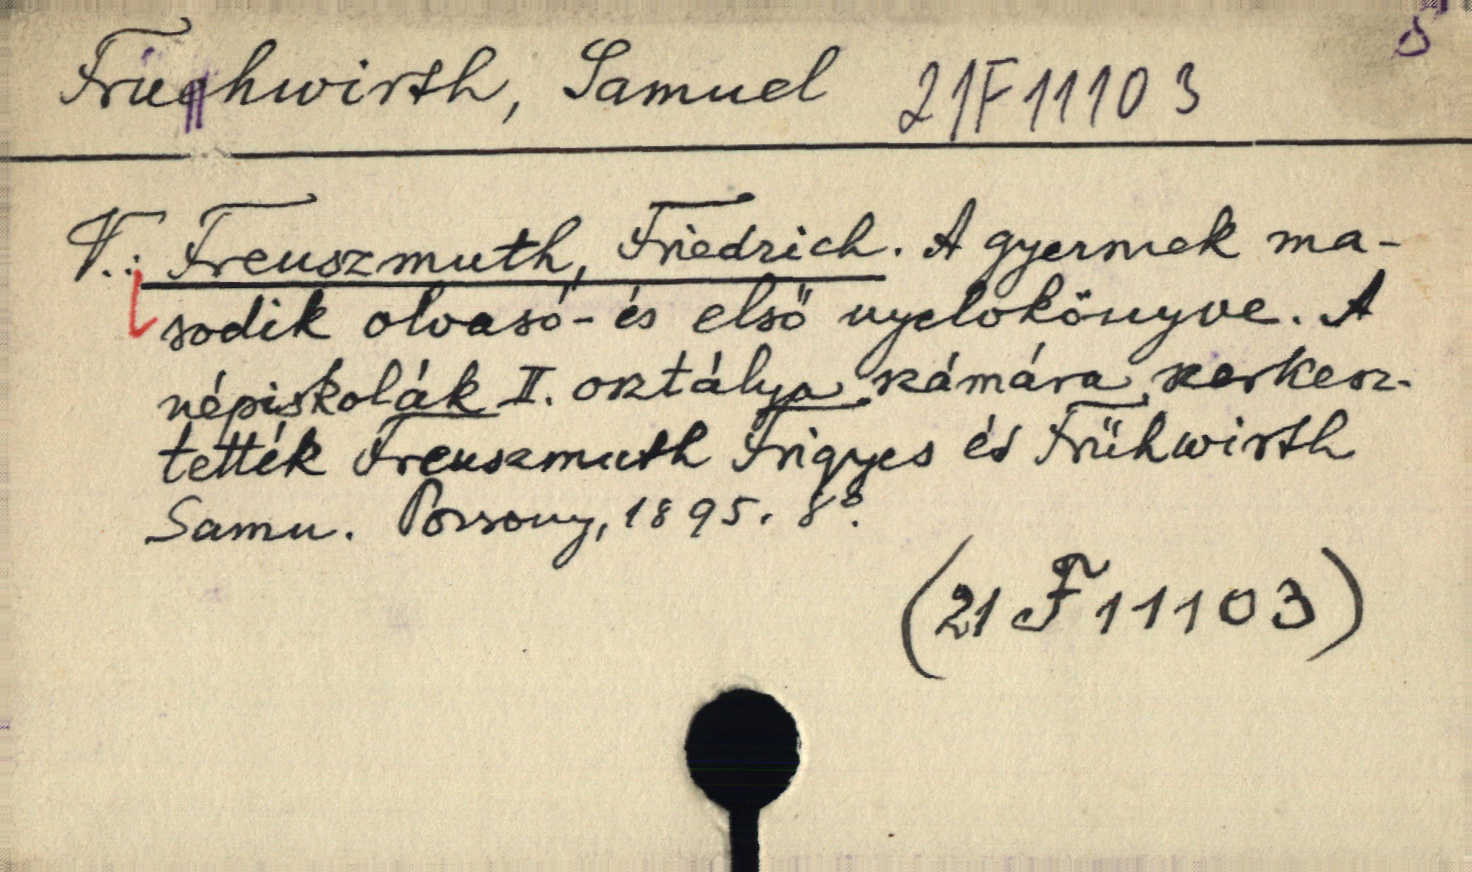 Früehwirth, Samuel 21F11103
V.: Freuszmuth, Friedrich. A gyermek ma-
sodik olvasó- és első nyelokönyve. A
népiskolák II. osztálya számára szerkesz-
tették Freuszmuth Frigyes és Frühwirth
Samu. Pozsony, 1895. 8°.
(21 F 11103)